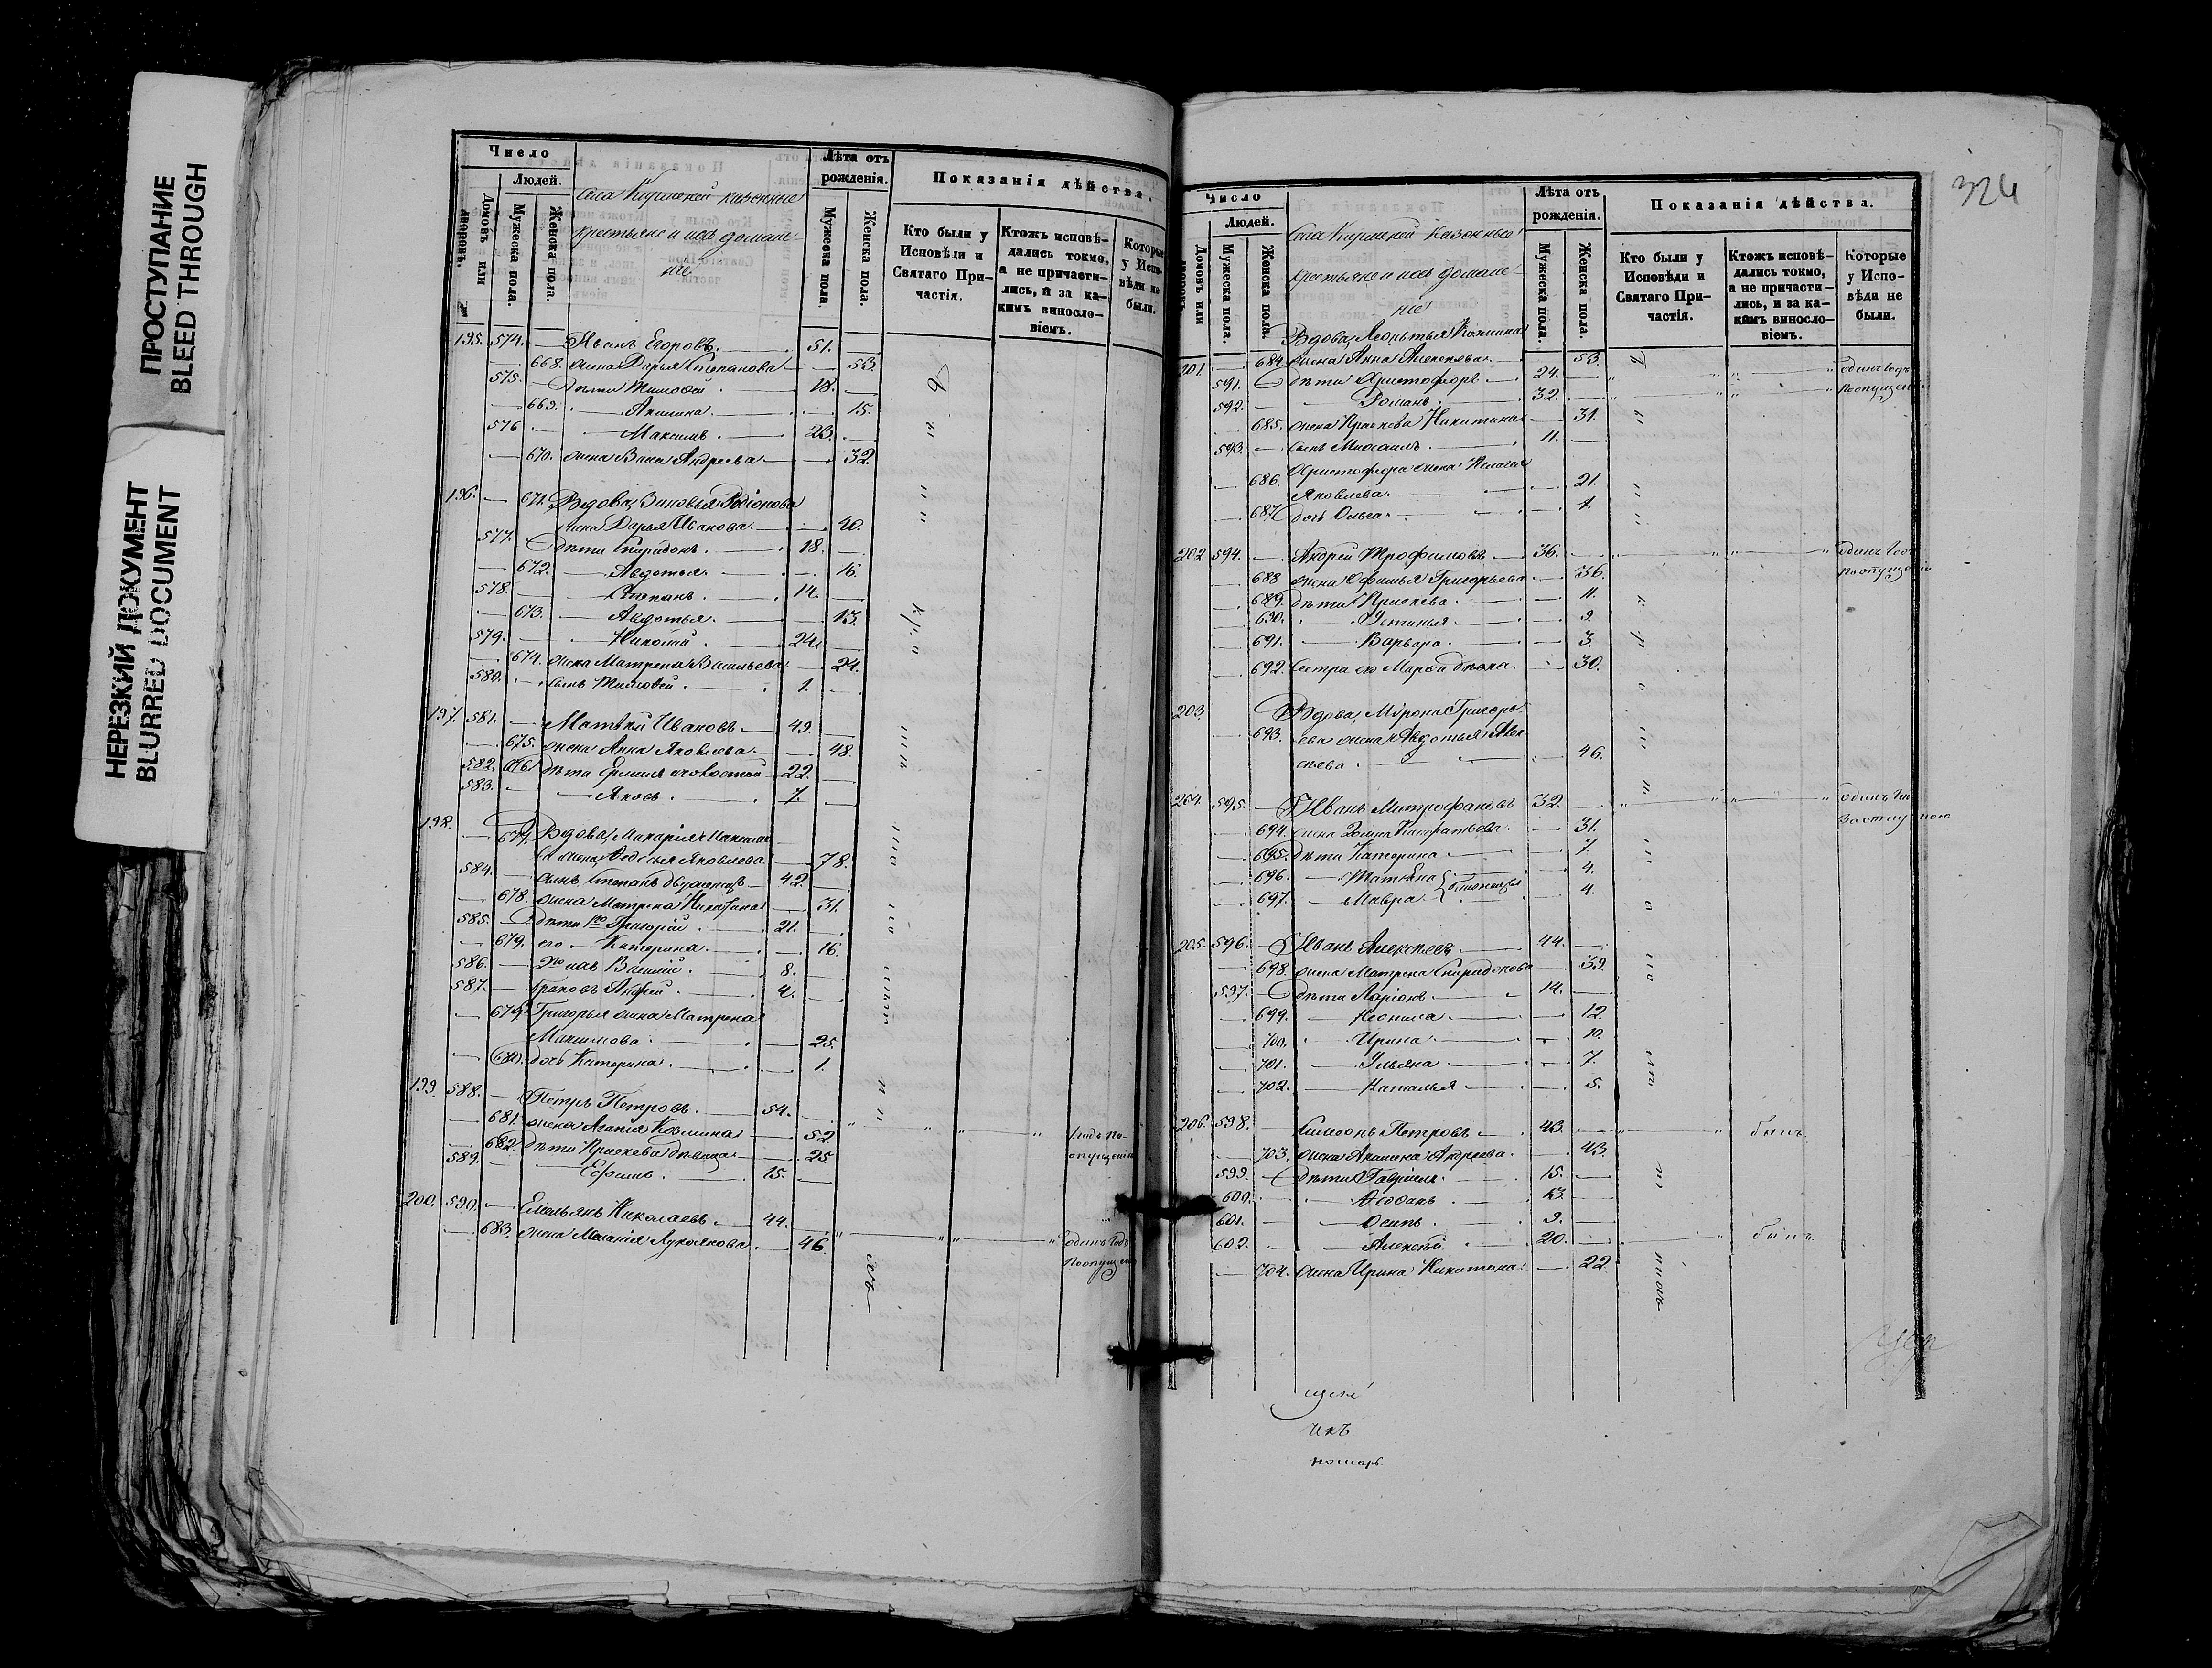 ПРОСТУПАНИЕ
BLEED THROUGH
НЕРЕЗКИЙ ДОКУМЕНТ
BLURRED DOCUMENT
Число
Людей.
Домовъ или дворовъ.
Мужеска пола.
Женска пола.
казенные
крестьяне и ихъ домаш-
ніе
Лѣта отъ
рожденія.
Мужеска пола.
Женска пола.
Показанія дѣйства.
Кто были у
Исповѣди и
Святаго При-
частія.
Ктожъ исповѣ-
дались токмо,
а не причасти-
лись, и за ка-
кимъ виносло-
віемъ.
Которые
у Испо-
вѣди не
были.
195. 574. Иванъ Егоровъ. 51.
668. жена Дарья Степанова 53.
575. дѣти Тимоѳей 18.
669. Акилина 15.
576 Максимъ 23.
670. жена Васса Андреева 32.
196. 671. Вдова, Зиновья Родіонова
жена Дарья Иванова 40.
577. дѣти Спиридонъ 18.
672. Авдотья 16.
578. Степанъ 14.
673. Авдотья 13.
579. 24.
674. жена Матрена Васильева 24.
580. сынъ Тимоѳей 1.
197. 581. Матвѣй Ивановъ 49.
675. жена Анна Яковлева 48.
582. 676. дѣти Ермилъ холостый 22.
583. Яковъ 7.
198. 677. Вдова, Макарія Максимо
жена, Ѳедосья Яковлева 78.
584. сынъ Степанъ двуженецъ 42.
678. жена Матрена Никитина 31.
585. дѣти 1го Григорій 21.
679. его Катерина 16.
586. 2го Василій 8.
587. браковъ Андрей 4.
679. Григорья жена Матрена
Максимова 25.
680. дочь Катерина 1.
199 588. Петръ Петровъ. 54.
681. жена Агапія Козмина 52.
682. дѣти Праскева дѣвица 25.
589. Ефимъ 15.
200. 590. Емельянъ Николаевъ 44.
683. жена Меланія Лукоянова 46.
одинъ годъ
по опущенію
324
Число
Людей.
Домовъ или дворовъ.
Мужеска пола.
Женска пола.
казенные
крестьяне и ихъ домаш-
ніе
Лѣта отъ
рожденія.
Мужеска пола.
Женска пола.
Показанія дѣйства.
Кто были у
Исповѣди и
Святаго При-
частія.
Ктожъ исповѣ-
дались токмо,
а не причасти-
лись, и за ка-
кимъ виносло-
віемъ.
Которые
у Испо-
вѣди не
были.
Вдова, Леонтья Козмина
201. 684. жена Анна Алексеева 53.
591. дѣти Христофоръ 24. одинъ годъ
592. Романъ 32. по опущенію
685. жена Праскева Никитина 31.
593. сынъ Михаилъ 11.
Христофора жена Пелагея
686. Яковлева 21.
687. дочь Ольга 1.
202. 594. Андрей Трофимовъ 36. одинъ годъ
688 жена Офимья Григорьева 36. по опущенію
689. дѣти Праскева 11.
690. Устинья 9.
691. Варвара 3.
692. сестра его Марѳа дѣвка 30.
203. Вдова, Мирона Григорь
693. ева жена Авдотья Алек
сѣева 46.
204. 595. Иванъ Митрофановъ 32. одинъ годъ
694. жена Домна Кондратьева 31. за отлучкою
695. дѣти Катерина 7.
696. Татьяна близнецы 4.
697. Мавра 4.
205. 596. Иванъ Алексѣевъ 44.
698. жена Матрена Спиридонова 39.
597. дѣти Ларіонъ 14.
699. Неонила 12.
700. Ирина 10.
701. Ульяна 7.
702. Наталья 5.
206. 598. Симеонъ Петровъ 43. былъ
703. жена Акилина Андреева 43.
599. дѣти Гавріилъ 15.
600. Богданъ 13.
601. Осипъ 9.
602. Алексѣй 20. былъ
704. жена Ирина Никитина 22.
щен
икъ
номарь